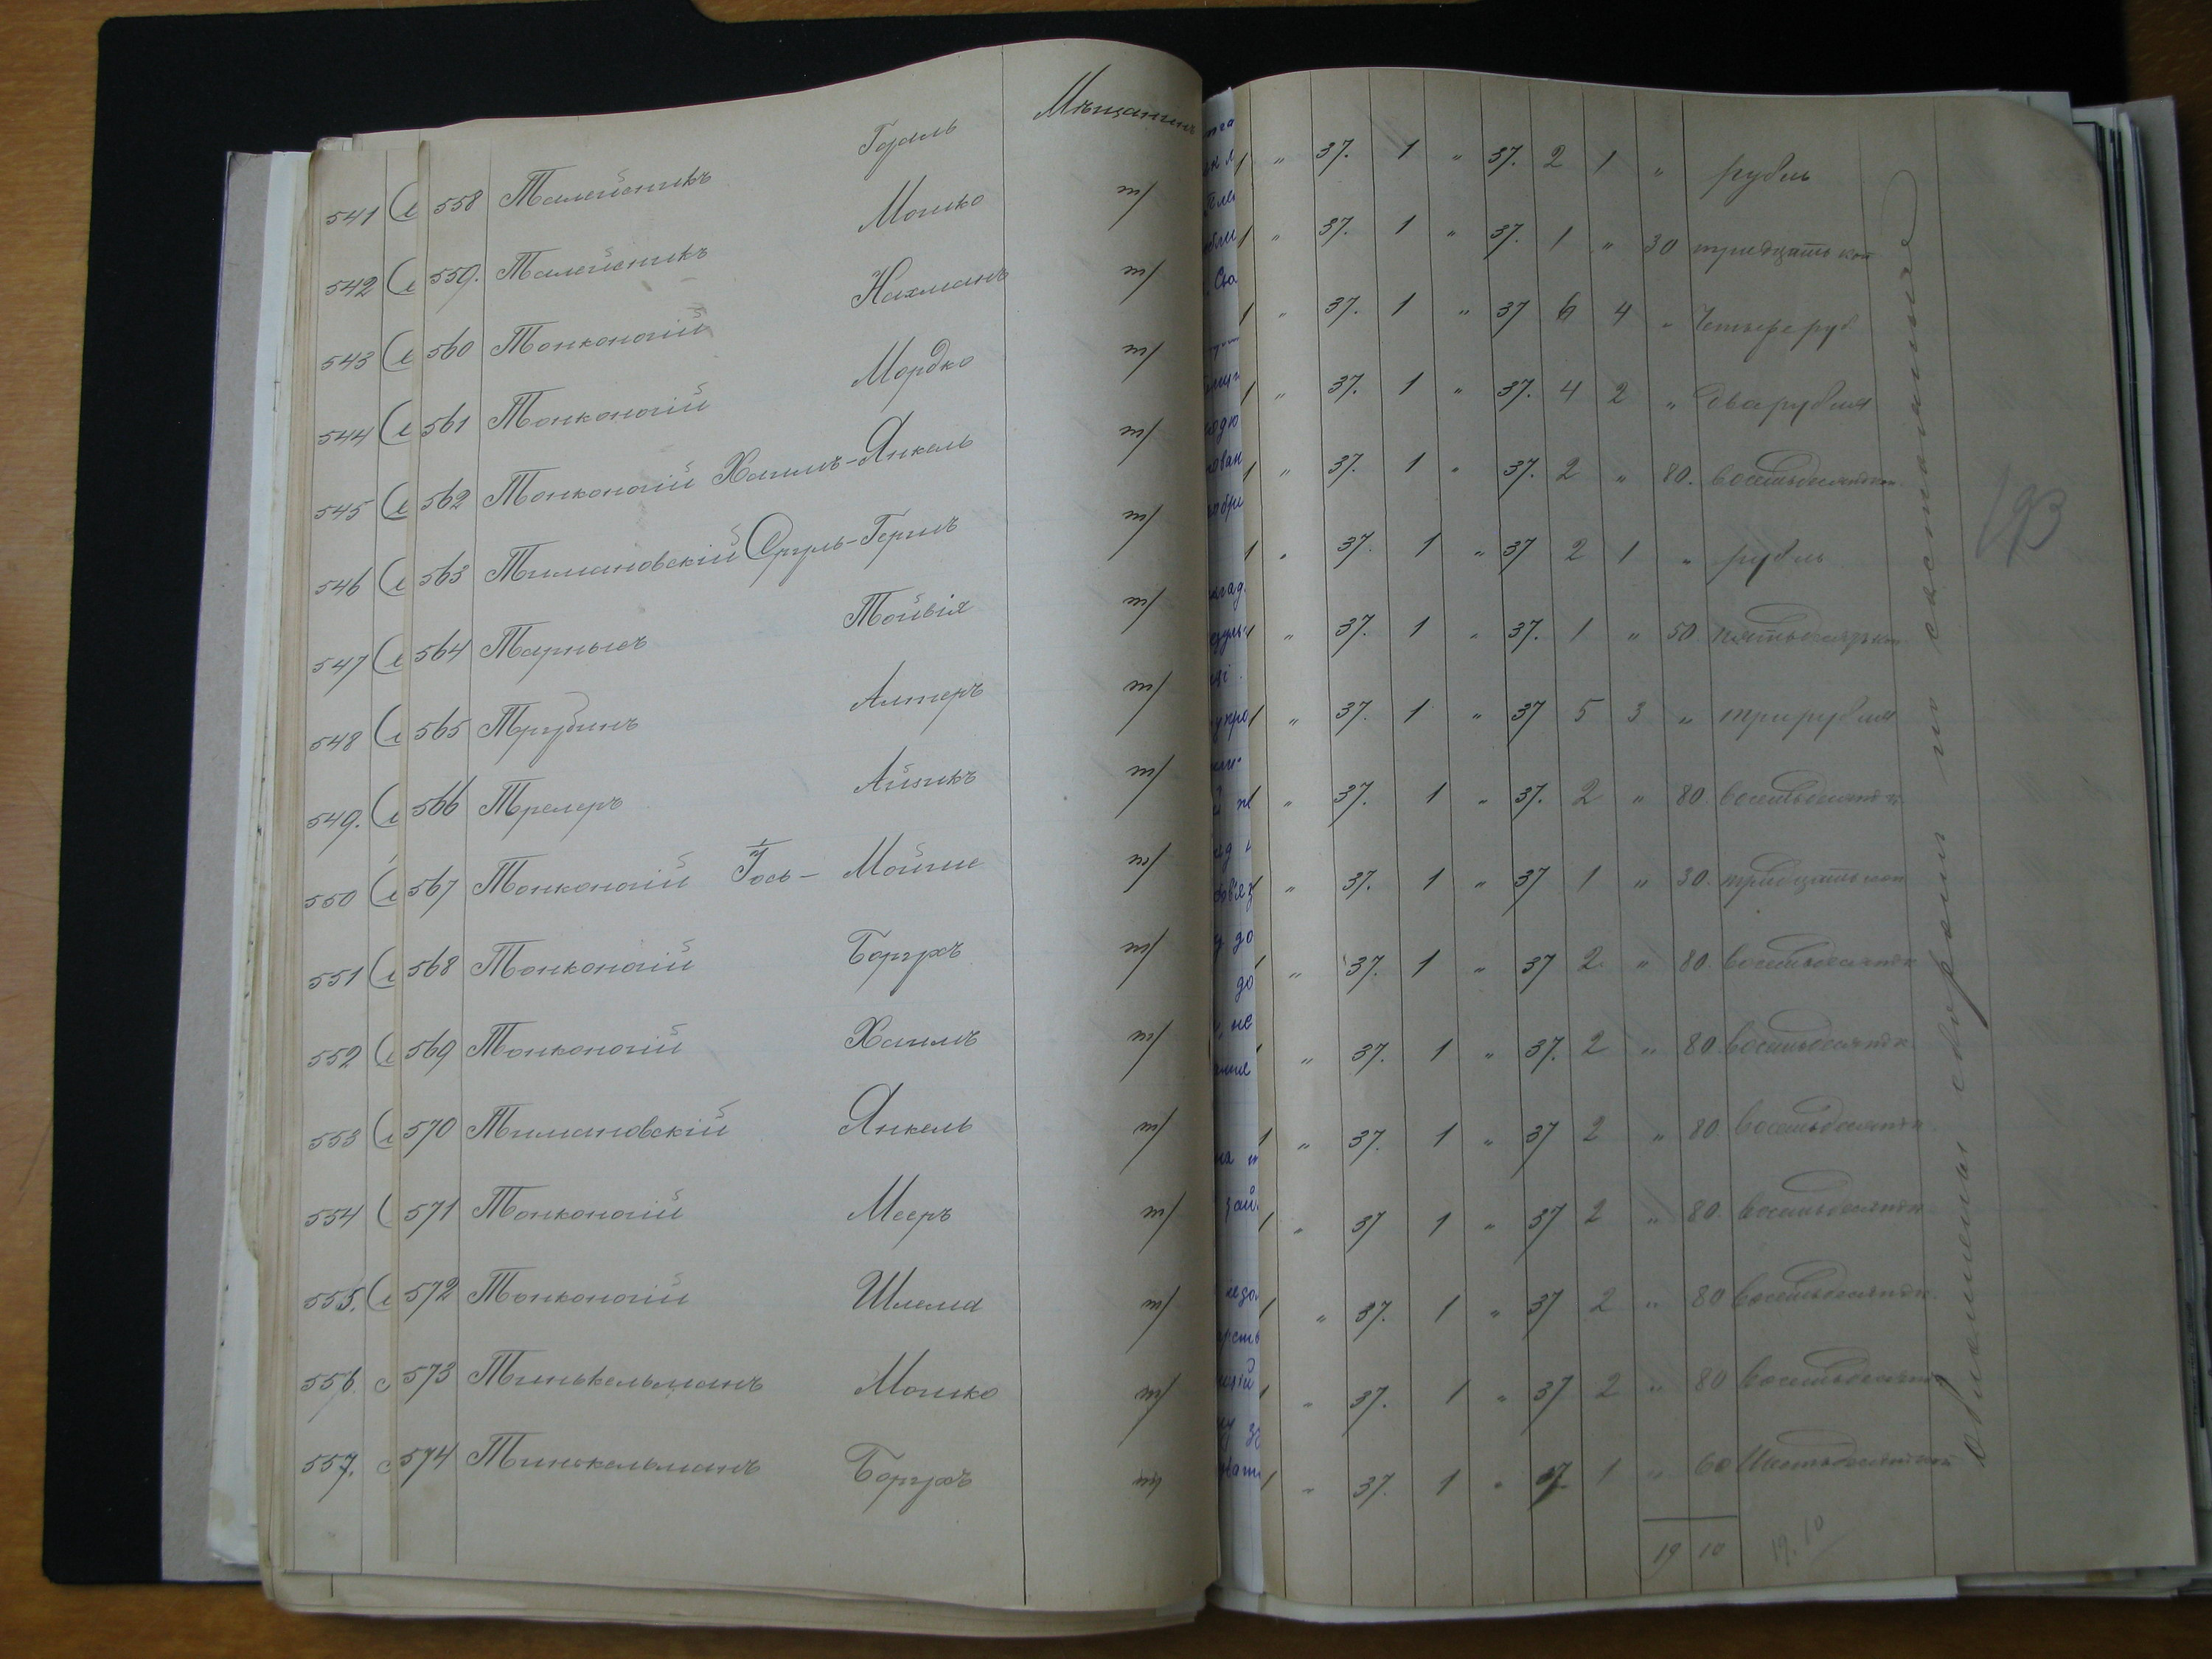 Мѣщанинъ
541 558 Талейсникъ Гдаль т/ 1 " 37. 1 " 37. 2 1 " рубль
542 559. Талейсникъ Мошко т/ 1 " 37. 1 " 37. 1 " 30 тридцать коп
543 560 Тонконогій Нахманъ т/ 1 " 37. 1 " 37 6 4 " Четыре руб
544 561 Тонконогій Мордко т/ 1 " 37. 1 " 37. 4 2 " два рубля
545 562 Тонконогій Хаимъ-Янкель т/ 1 " 37. 1 " 37. 2 " 80. восемьдесятъ коп.
546 563 Тимановскій Сруль-Гершъ т/ 1 " 37. 1 " 37 2 1 " рубль
547 564 Тойвія т/ 1 " 37. 1 " 37. 1 " 50. пятьдесятъ коп
548 565 Трубинъ Алтеръ т/ 1 " 37. 1 " 37 5 3 " три рубля
549. 566 Трелеръ Айзикъ т/ " 37. 1 " 37. 2 " 80. восемьдесятъ к
550 567 Тонконогій Іось-Мойше т/ " 37. 1 " 37 1 " 30. тридцать коп
551 568 Тонконогій Борухъ т/ " 37. 1 " 37 2 " 80. восемьдесятъ к
552 569 Тонконогій Хаимъ т/ " 37. 1 " 37. 2 " 80. восемьдесятъ к.
553 570 Тимановскій Янкель т/ 1 " 37. 1 " 37 2 " 80 восемьдесятъ к
554 571 Тонконогій Мееръ т/ 1 " 37 1 " 37 2 " 80. восемьдесятъ к
555. 572 Тонконогій Шлема т/ 1 " 37. 1 " 37 2 " 80 восемьдесятъ к.
556. 573 Тинькельманъ Мошко т/ 1 " 37. 1 " 37 2 " 80 восемьдесятъ
557. 574 Тинькельманъ Борухъ т/ 1 " 37. 1 " 37 1 " 60 Шестьдесятъ коп
19 10
19.10
193